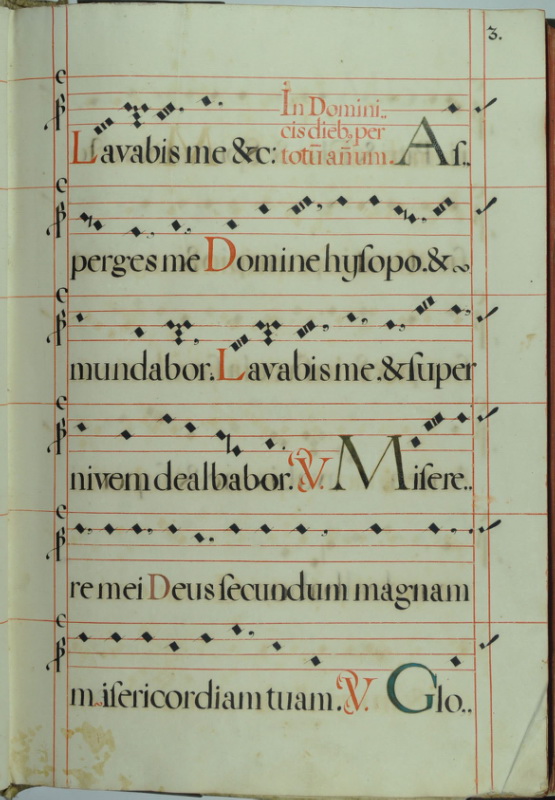 3.
Lavabis me &c: In Domini..
cis dieb9 per
totū añum. Aſ..
perges me Domine hyſopo. &~
mundabor. Lavabis me. & ſuper
nivem dealbabor. V. Miſere..
re mei Deus ſecundum magnam
miſericordiam tuam. V. Glo..